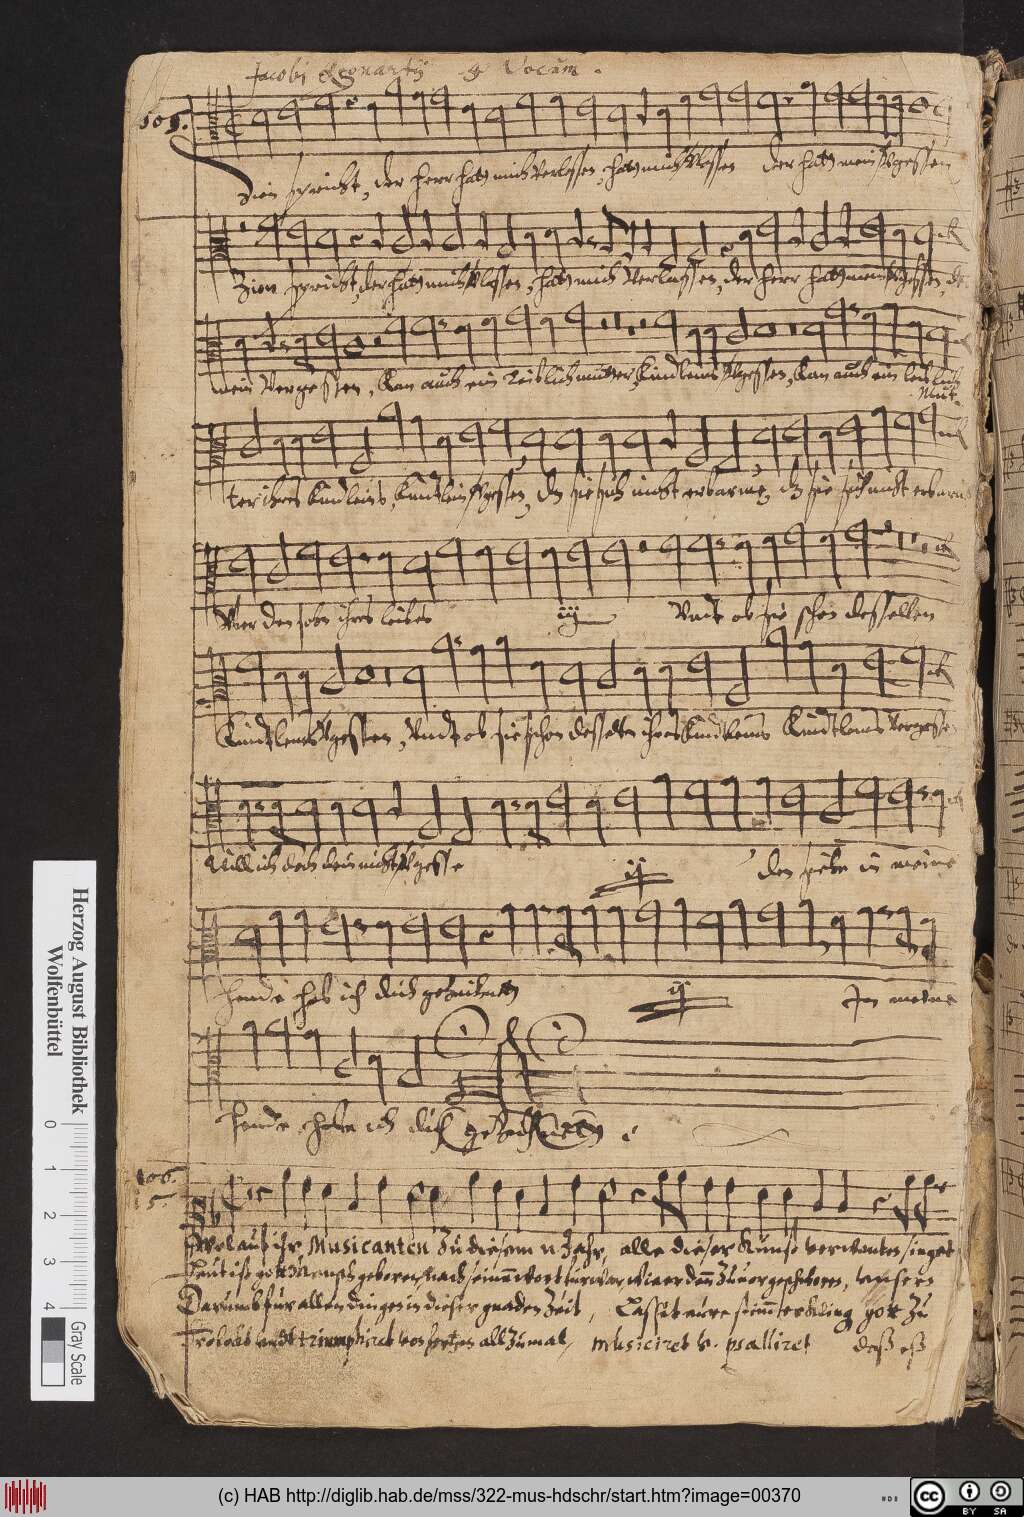 Jacobi Leonartij 4 Vocum.
105.
Zion spricht, der Herr hatt mich verlassen, hatt mich vlassen der hatt mein vgessen
Zion spricht, der hatt mich vlassen, hatt mich verlassen, der Herr hatt mein vgessen, der
mein vergessen, Kan auch ein leiblich mutter, Kindleins vgessen, Kan auch ein leiblich
Mut-
ter ihres Kindleins, Kindtlein vgessen, dz sie sich nicht erbarme, dz sie sich nicht erbarme
Vber den sohn ihres leibes iij Vndt ob sie schon desselben
Kindtleins vgessen, Vndt ob sie schon desselben ihres Kindtleins Kindtleins vergesse
Will ich doch dein nicht vgesse ij den siehe in meine
Hende hab ich dich gezeichnett ij In meine
Hende habe ich dich gezeichnett
106.
15.
Wolauf ihr Musicanten Zu diesem n Jahr, alle dieser Kunst verwanten singet
Heut ist gott Mensch geboren, nach seinem wort fürwar wie er dann Zuvor geschworen, unsern
Darumb fur allen dingen in dieser gnaden Zeit, Lassit eure stim erkling gott Zu
Frolockt undt triumphiret von hertzen allzumal, musiciret v. psalliret daß eß
Herzog August Bibliothek
Wolfenbüttel
0 1 2 3 4 Gray Scale
(c) HAB http://diglib.hab.de/mss/322-mus-hdschr/start.htm?image=00370
HAB
cc BY SA